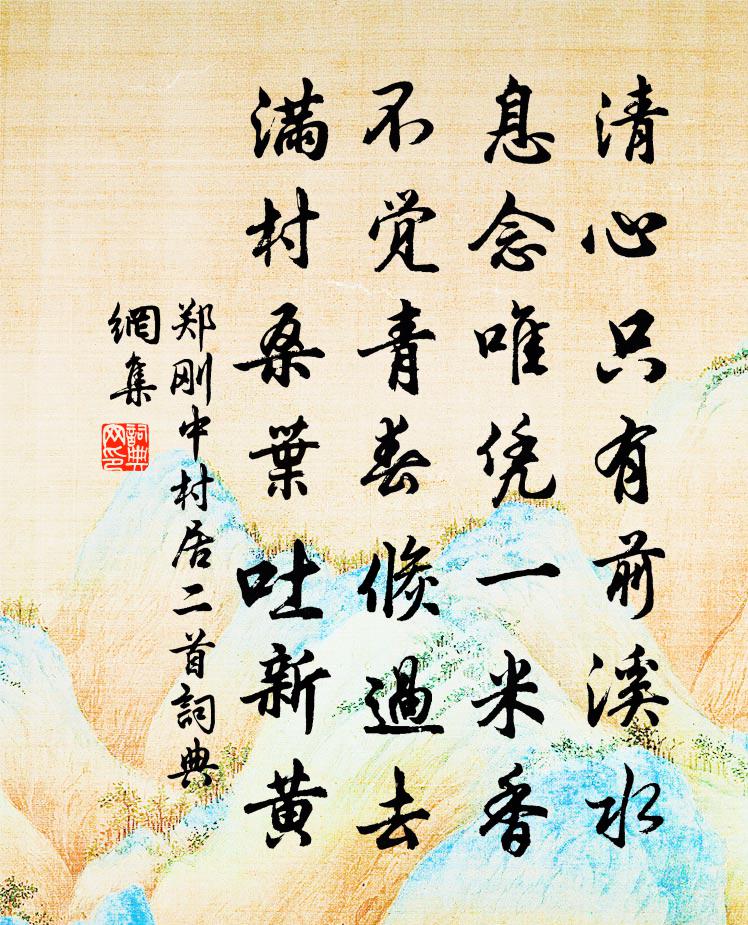 清心只有前溪水
息念唯凭一米香
不觉青春倏過去
满村桑葉吐新黄
郑刚中村居二首詞典
網集
詞典
网印